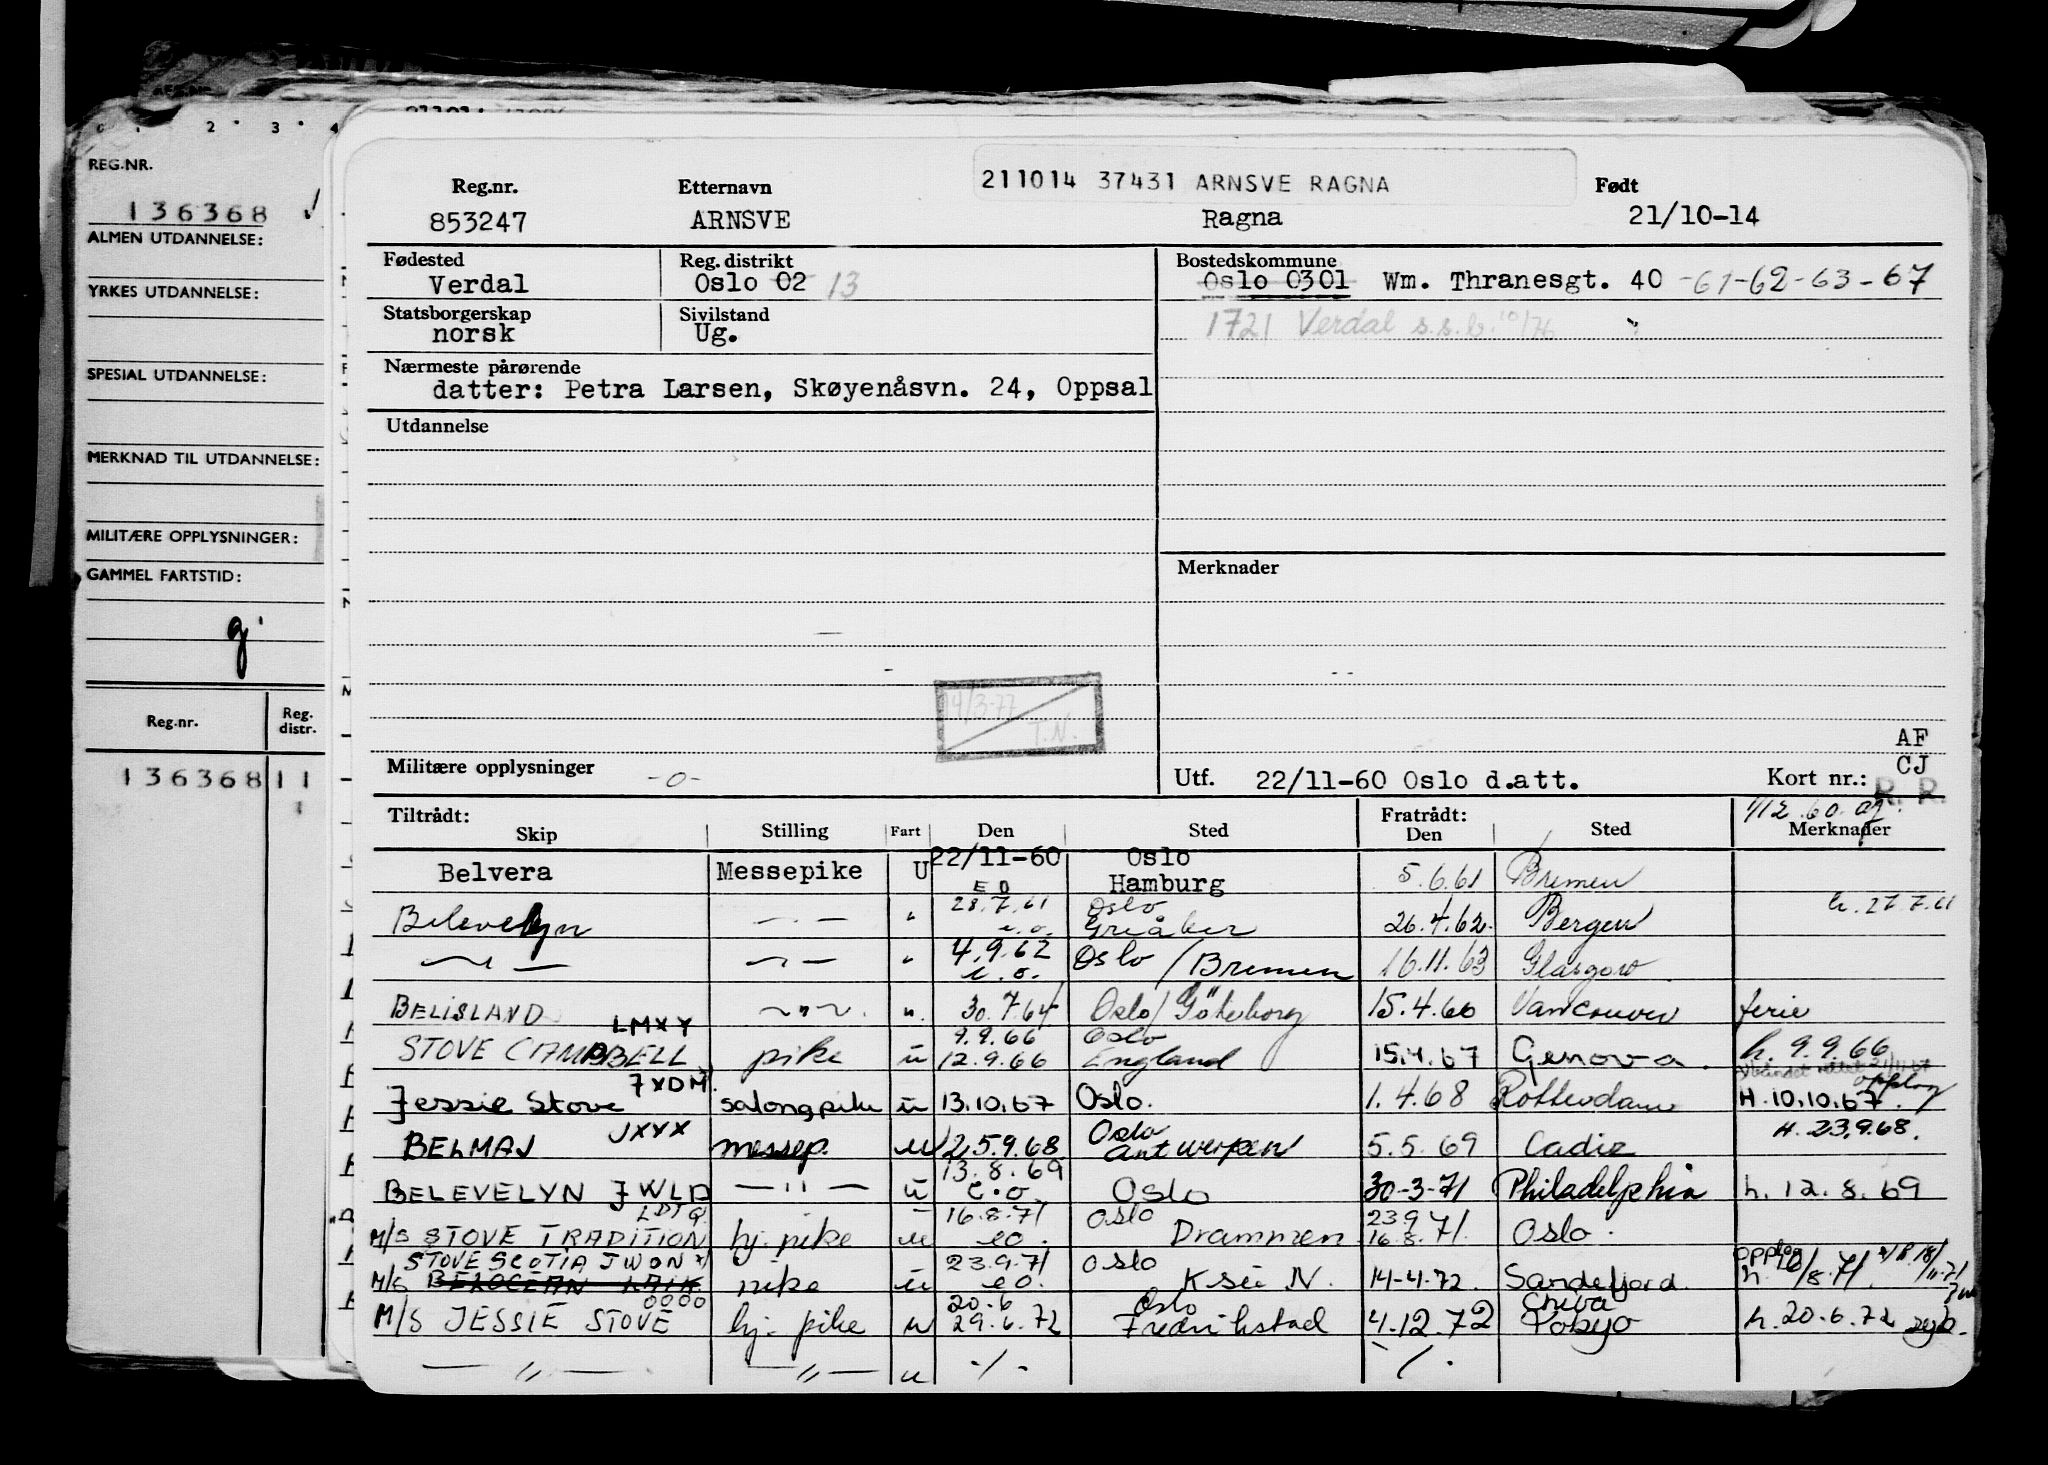 0 1 2 3 4
REG.NR.
136368
ALMEN UTDANNELSE:
YRKES UTDANNELSE:
SPESIAL UTDANNELSE:
MERKNAD TIL UTDANNELSE:
MILITÆRE OPPLYSNINGER:
GAMMEL FARTSTID:
Reg.nr. Reg. distr.
136368 11
211014 37431 ARNSVE RAGNA
Reg.nr. Etternavn Født
853247 ARNSVE Ragna 21/10-14
Fødested Reg. distrikt Bostedskommune
Verdal Oslo 02 13 Oslo 0301 Wm. Thranesgt. 40 -61-62-63-67
Statsborgerskap Sivilstand
norsk Ug. 1721 Verdal s.s.b. 10/76
Nærmeste pårørende
datter: Petra Larsen, Skøyenåsvn. 24, Oppsal
Utdannelse
Merknader
14/3-77
T.N.
AF
CJ
Militære opplysninger -o- Utf. 22/11-60 Oslo d.att. Kort nr.:
R. R.
Tiltrådt: Fratrådt:
Skip Stilling Fart Den Sted Den Sted Merknader
Belvera Messepike U 22/11-60 Oslo Hamburg 5.6.61 Bremen
Belevelyn — " — " 28.7.61 Oslo Greåker 26.4.62 Bergen h. 27.7.61
— " — — " — " 4.9.62 e.o. Oslo / Bremen 16.11.63 Glasgow
BELISLAND — " — " 30.7.64 Oslo/Göteborg 15.4.66 Vancouver ferie
STOVE CAMPBELL LMXY pike u 9.9.66 12.9.66 Oslo England 15.4.67 Genova h. 9.9.66
Jessie Stove JXDM salongpike u 13.10.67 Oslo. 1.4.68 Rotterdam H. 10.10.67. opplag
BELMAJ JXYX messep. u 25.9.68 Oslo Antwerpen 5.5.69 Cadiz H. 23.9.68.
BELEVELYN JWLD — " — u 13.8.69 e.o. Oslo 30-3-71 Philadelphia h. 12.8.69
M/S STOVE TRADITION hj. pike u 16.8.71 eo. Oslo Drammen 23.9.71. 16.8. Oslo.
STOVE SCOTIA JWON
M/S BELOCEAN pike u 23.9.71 eo. Oslo K sei N. 14-4-72. Sandefjord. opplag
M/S JESSIE STOVE hj. pike u 20.6 29.6.72 Oslo Fredrikstad 4.12.72 Chiba Tokyo h. 20.6.72
— " — — " — u -/- -/-